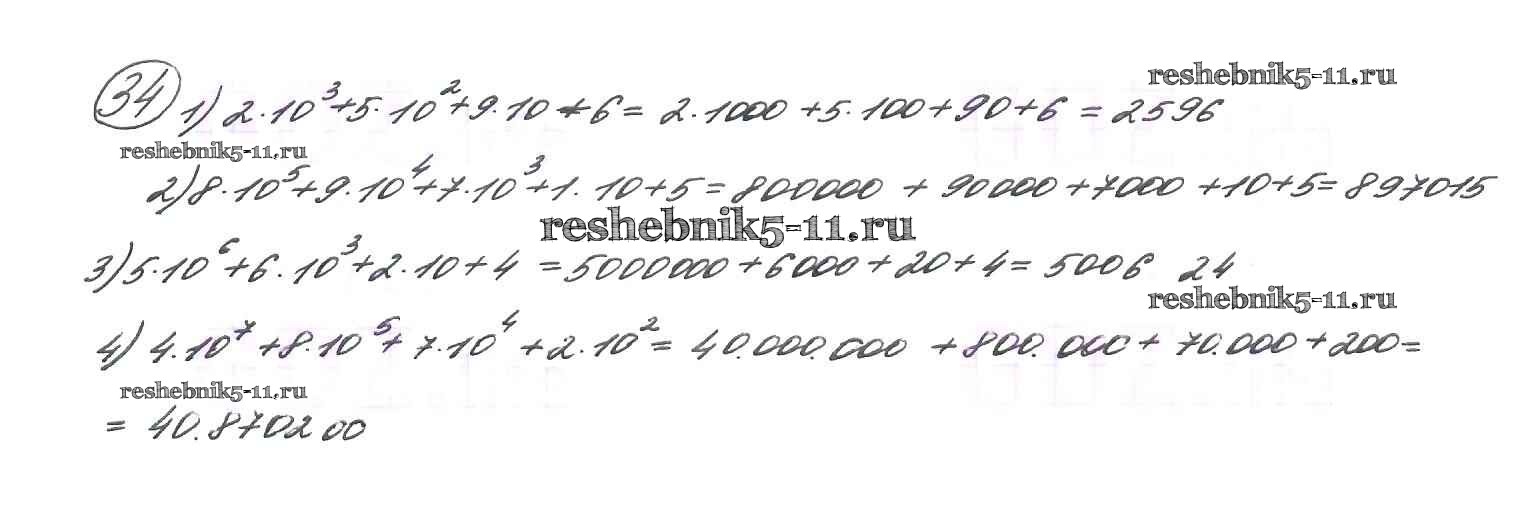 reshebnik5-11.ru
34 1) 2·10³+5·10²+9·10+6= 2·1000+5·100+90+6=2596
reshebnik5-11.ru
2) 8·10⁵+9·10⁴+7·10³+1·10+5=800000+90000+7000+10+5=897015
reshebnik5-11.ru
3) 5·10⁶+6·10³+2·10+4=5000000+6000+20+4=5006 24
reshebnik5-11.ru
4) 4·10⁷+8·10⁵+7·10⁴+2·10²=40.000.000+800.000+70.000+200=
reshebnik5-11.ru
= 40.870200